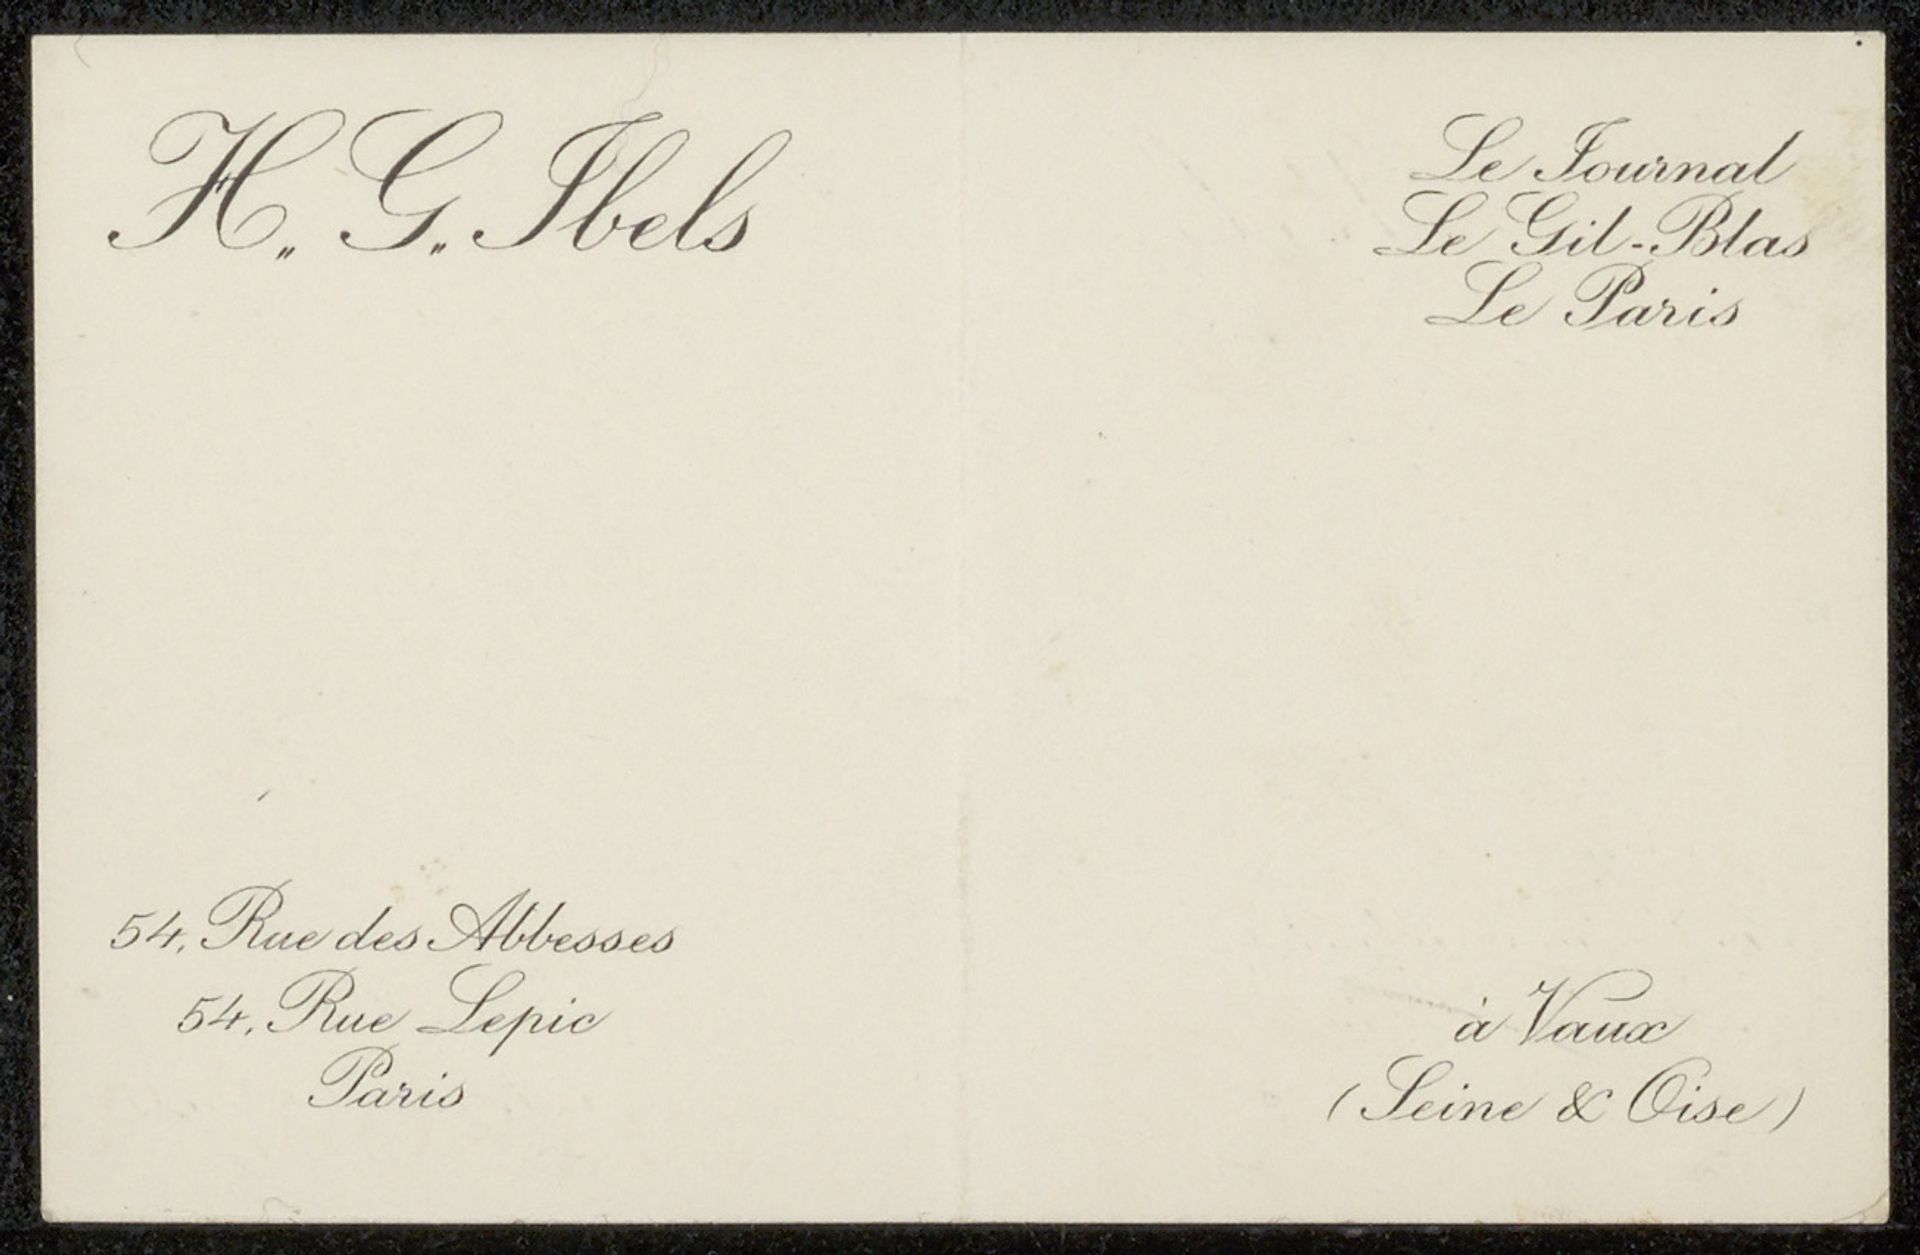 H. G. Ibels
Le Journal
Le Gil-Blas
Le Paris
54, Rue des Abbesses
54, Rue Lepic
Paris
à Vaux
(Seine & Oise)